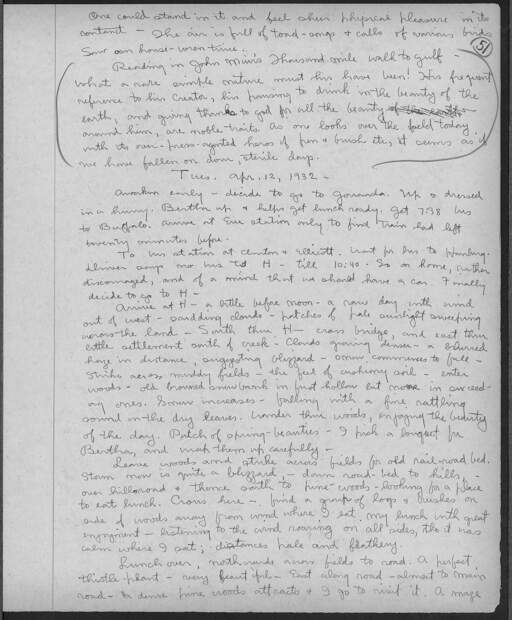 One could stand in it and feel sheer physical pleasure in its
content – The air is full of toad-songs & calls of various birds
Saw our house-wren – true.
51
Reading in John Muir's Thousand mile walk to gulf –
What a rare simple nature must his have been! His frequent
reference to his Creator, his pausing to drink in the beauty of the
earth, and giving thanks to god for all the beauty
around him, are noble traits. As one looks over the field today
with its over-press-agented heros of pen & brush etc, it seems as if
we have fallen on dour, sterile days.
Tues. Apr. 12, 1932 –
Awaken early – decide to go to Gowanda. Up & dressed
in a hurry. Bertha up & helps get lunch ready. Get 7:38 bus
to Buffalo. Arrive at Erie station only to find train had left
twenty minutes before.
To bus station at Clinton & Ellicott. Wait for bus to Hamburg.
Driver says no bus to H – till 10:40. So on home, rather
discouraged, and of a mind that we should have a car. Finally
decide to go to H –
Arrive at H – a little before noon – a raw day with wind
out of west – scudding clouds – patches of pale sunlight sweeping
across the land – South thru H – cross bridge, and east thru
little settlement south of creek – Clouds growing denser – a blurred
haze in distance, suggesting blizzard – snow commences to fall –
Strike across muddy fields – the feel of cushiony soil – enter
woods – old browned snowbank in first hollow but more in succeed-
ing ones. Snow increases – falling with a fine rattling
sound on the dry leaves. Wander thru woods, enjoying the beauty
of the day. Patch of spring-beauties – I pick a bouquet for
Bertha, and wrap them up carefully –
Leave woods and strike across fields for old rail-road bed.
Storm now is quite a blizzard – down road bed to hills, –
over hillroad & thence south to pine-woods – looking for a place
to eat lunch. Cross here – find a group of logs & bushes on
side of woods away from wind where I eat my lunch with great
enjoyment – listening to the wind roaring on all sides, tho it was
calm where I sat; distances pale and feathery.
Lunch over, northwards across fields to road. A perfect
thistle-plant – very beautiful – East along road – almost to main
road – A dense pine woods attracts & I go to visit it. A maze